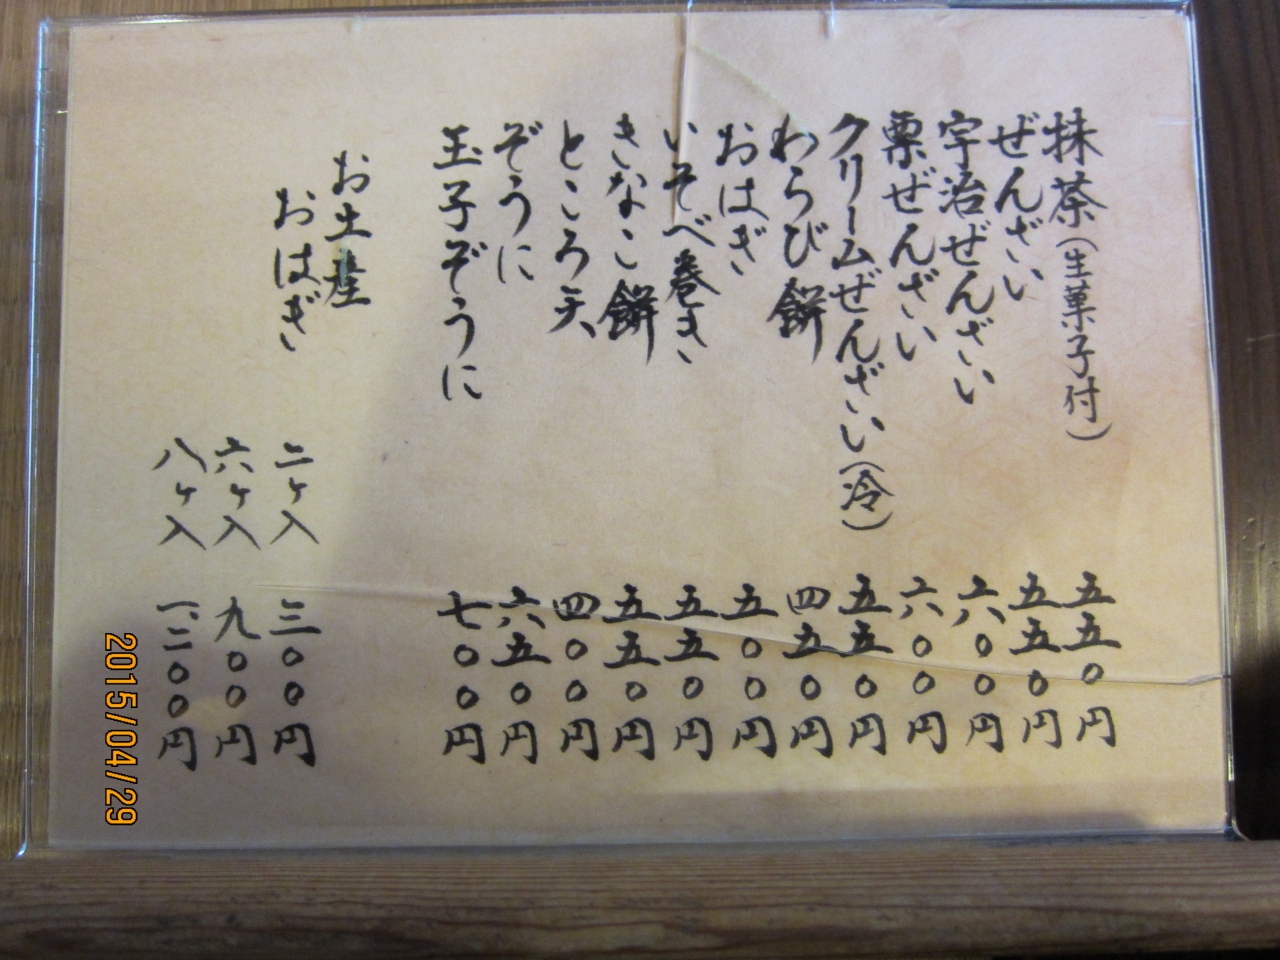 抹茶(生菓子付) 五五〇円
ぜんざい 五五〇円
宇治ぜんざい 六〇〇円
栗ぜんざい 六〇〇円
クリームぜんざい(冷) 五五〇円
わらび餅 四五〇円
おはぎ 五〇〇円
いそべ巻き 五五〇円
きなこ餅 五五〇円
ところ天 四〇〇円
ぞうに 六五〇円
玉子ぞうに 七〇〇円
お土産
おはぎ 二ヶ入 三〇〇円
六ヶ入 九〇〇円
八ヶ入 一、二〇〇円
2015/04/29